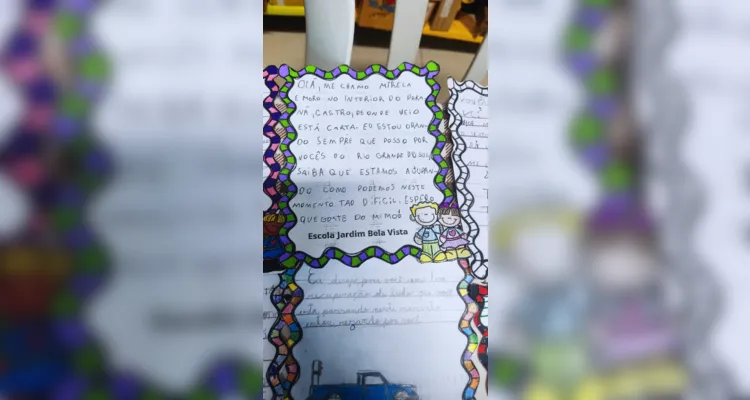 OLÁ, ME CHAMO MIRELA
E MORO NO INTERIOR DO PARA
NÁ, CASTRO, DE ONDE VEIO
ESTÁ CARTA. EU ESTOU ORAN
DO SEMPRE QUE POSSO POR
VOCÊS DO RIO GRANDE DO SUL
SAIBA QUE ESTAMOS AJUDAN
DO COMO PODEMOS NESTE
MOMENTO TÃO DIFÍCIL. ESPERO
QUE GOSTE DO MIMO
Escola Jardim Bela Vista
Eu desejo para você uma boa
recuperação de tudo que você
está passando neste momento
estou rezando por você